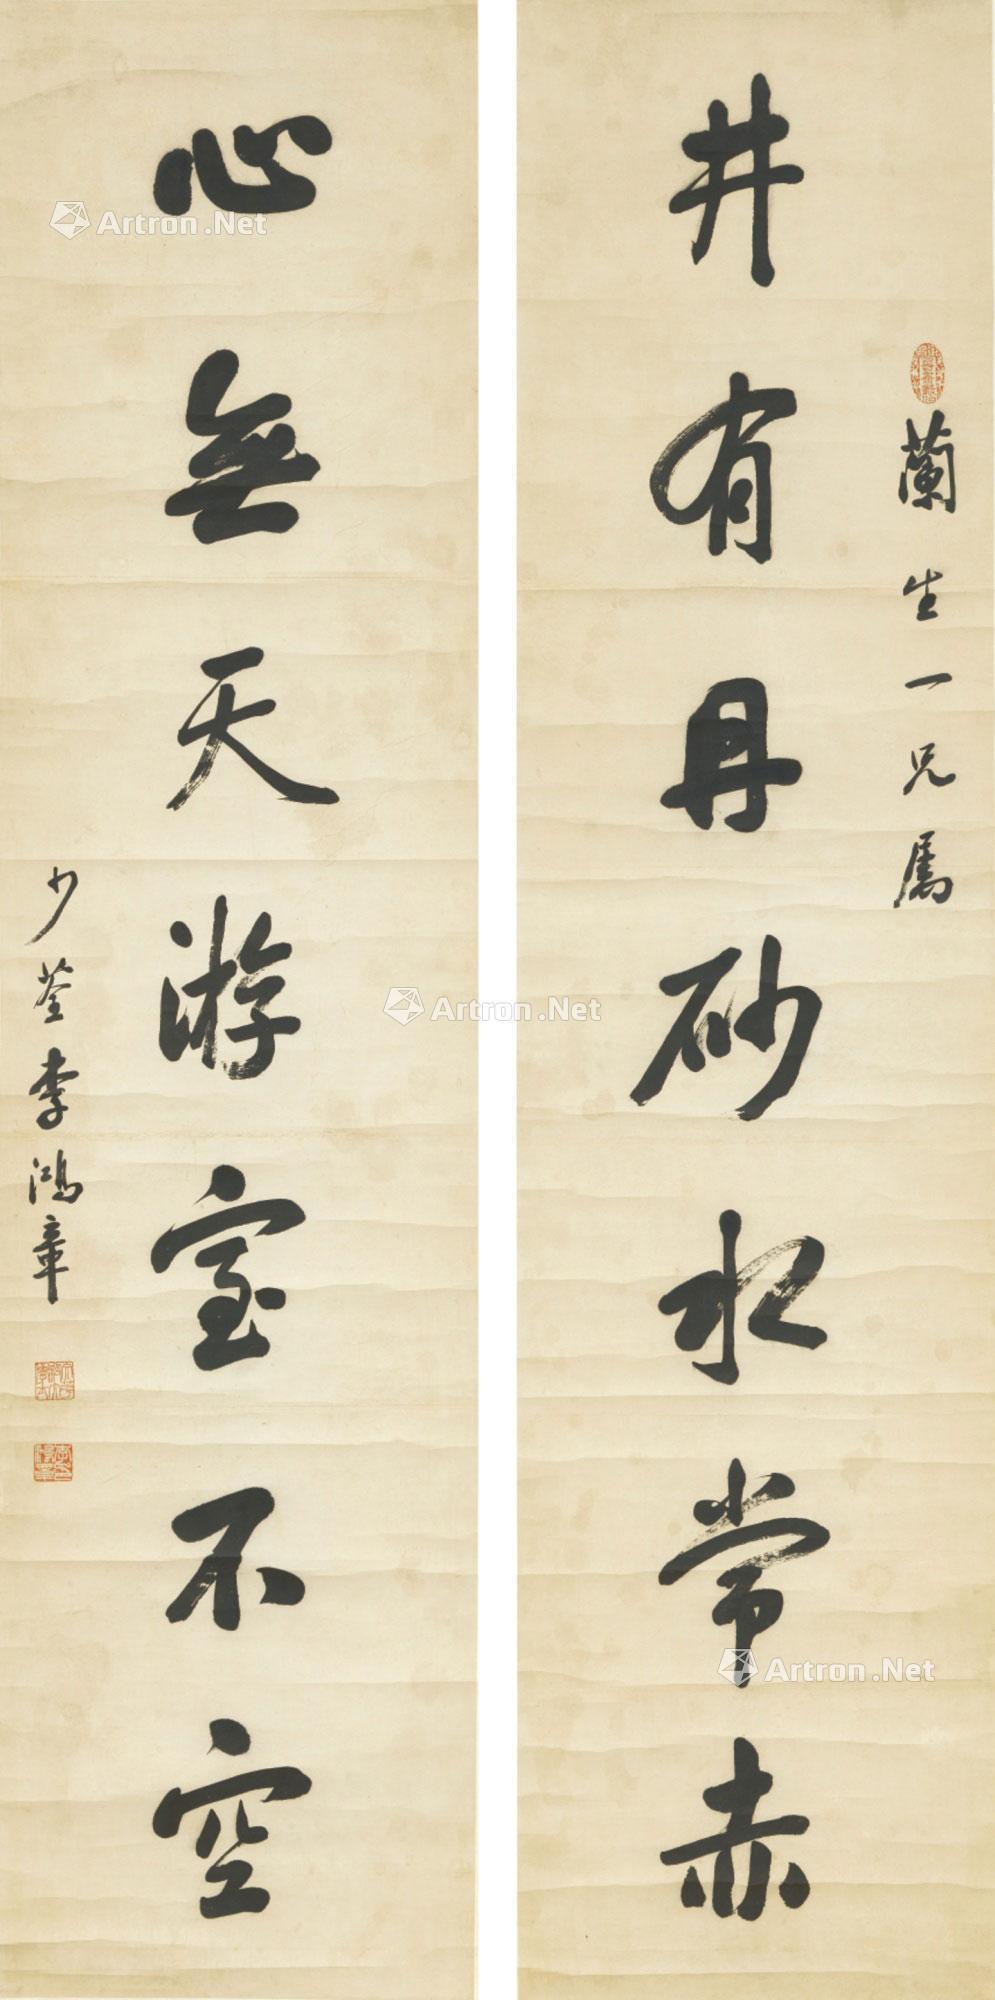 蘭生一兄屬
井有丹砂水常赤
心無天游室不空
少荃李鴻章
Artron.Net
Artron.Net
Artron.Net